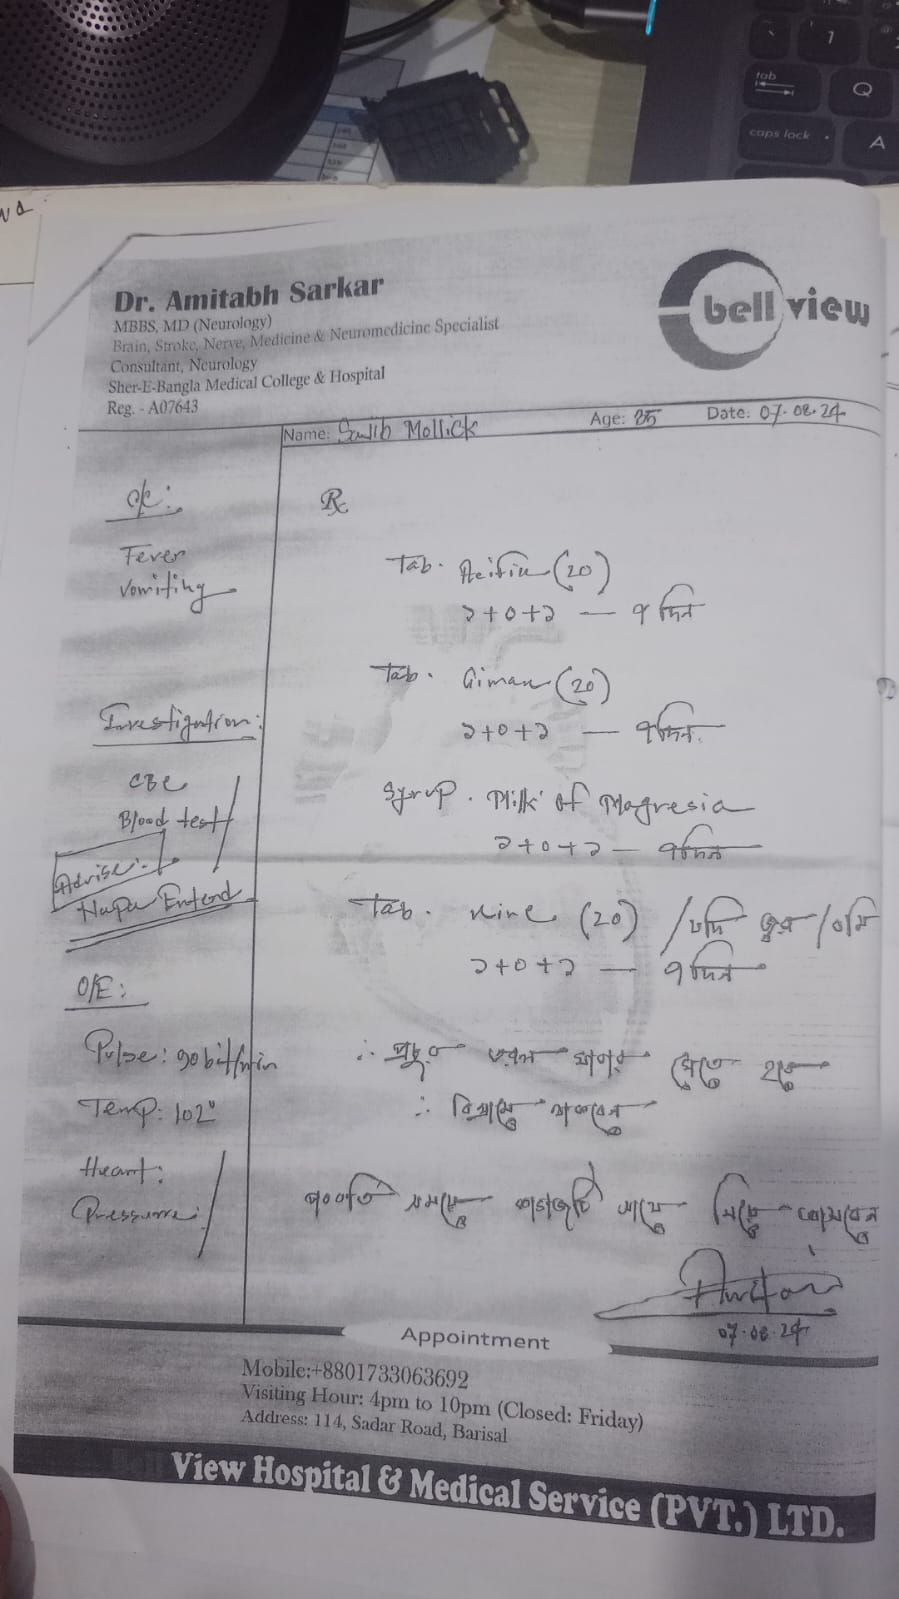 Dr. Amitabh Sarkar
MBBS, MD (Neurology)
Brain, Stroke, Nerve, Medicine & Neuromedicine Specialist
Consultant, Neurology
Sher-E-Bangla Medical College & Hospital
Reg. - A07643
bell view
Name: Mollick Age: 25 Date: 07.08.24
Fever
Vomiting
Investigation:
CBC
Blood test
Advise:
Napa Extend
O/E:
Pulse: 90 bit/min
Temp: 102°
Heart:
Pressure:
Rx
Tab. (20)
১+০+১ — ৭ দিন
Tab. (20)
১+০+১ — ৭ দিন
Syrup. Milk of Magnesia
১+০+১ — ৭ দিন
Tab. (20) / যদি জ্বর / বমি
১+০+১ — ৭ দিন
∴ প্রচুর তরল খাবার খেতে হবে
∴ বিশ্রামে থাকবেন
পরবর্তি সময়ে কাগজটি সাথে নিয়ে আসবেন
07.08.24
Appointment
Mobile:+8801733063692
Visiting Hour: 4pm to 10pm (Closed: Friday)
Address: 114, Sadar Road, Barisal
View Hospital & Medical Service (PVT.) LTD.
tab
Q
caps lock
A
1